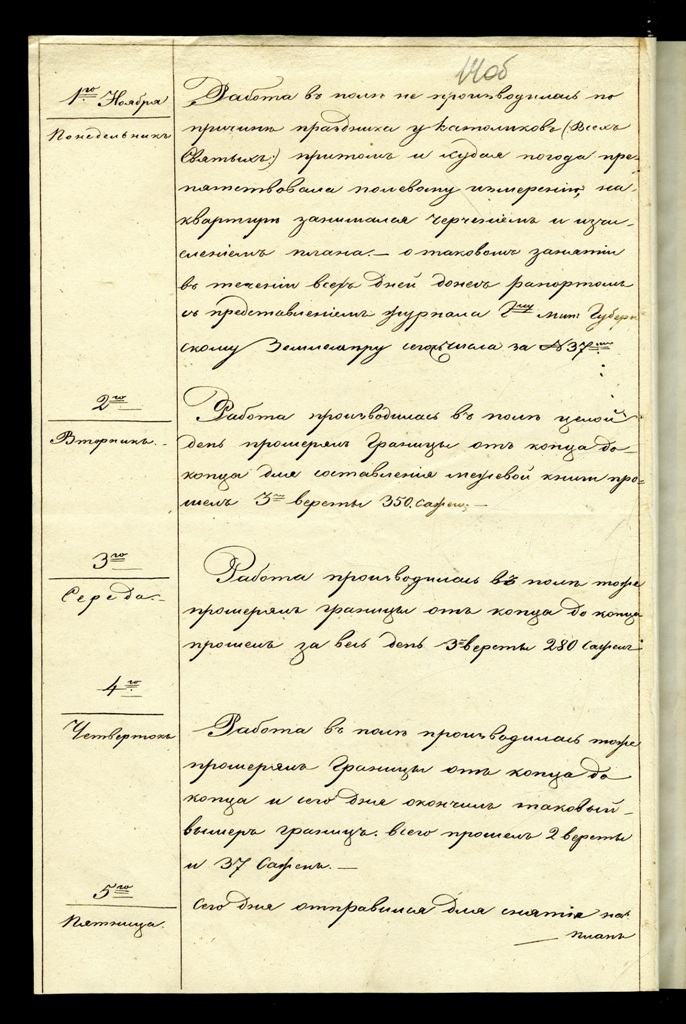 14об
1го Ноября
Понедельникъ
Работа въ полѣ не производилась по
причинѣ праздника у католиковъ (Всехъ
Святыхъ) притомъ и худая погода пре-
пятствовала полевому измеренію, на
квартирѣ занимался черченіемъ и изчи-
сленіемъ плана. — о таковомъ занятіи
въ теченіи всехъ дней донесъ рапортомъ
съ представленіемъ журнала Гну Мин: Губерн
скому Землемѣру сего числа за №37мъ
2го
Вторникъ. -
Работа производилась въ полѣ целой
день промерялъ границы отъ копца до-
копца для составленія межевой книги про-
шелъ 3 версты 350. сажен; —
3го
Середа. -
Работа производилась въ полѣ тоже
промерялъ границы отъ копца до копца
прошелъ за весь день 3 версты 280 сажень
4го
Четвертокъ
Работа въ полѣ производилась тоже
промерялъ границы отъ копца до
копца и сего дня окончилъ таковый
вымеръ границъ. всего прошелъ 2 версты
и 37 сажень. —
5го
Пятница.
сего дня отправился для снятія на
— планъ